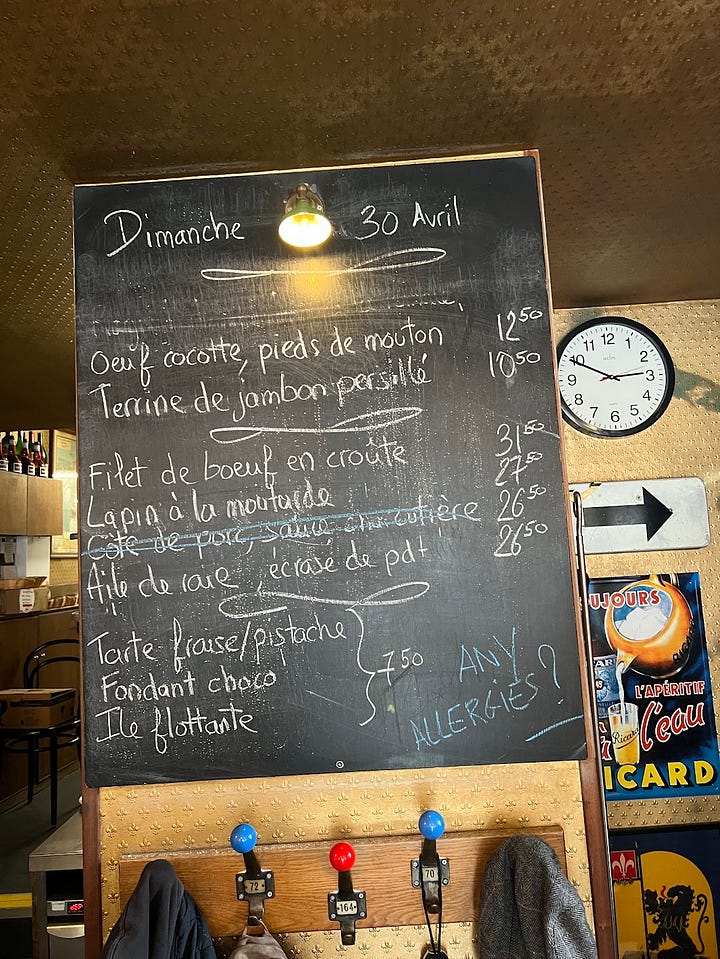 Dimanche 30 Avril
Oeuf cocotte, pieds de mouton 12⁵⁰
Terrine de jambon persillé 10⁵⁰
Filet de boeuf en croûte 31⁵⁰
Lapin à la moutarde 27⁵⁰
Côte de porc, sauce charcutière 26⁵⁰
Aile de raie, écrasé de pdt 26⁵⁰
Tarte fraise/pistache
Fondant choco 7⁵⁰
Ile flottante
ANY
ALLERGIES?
12 1 2 3 4 5 6 7 8 9 10 11
UJOURS
L'APÉRITIF
l'eau
Ricard
ICARD
72
164
70